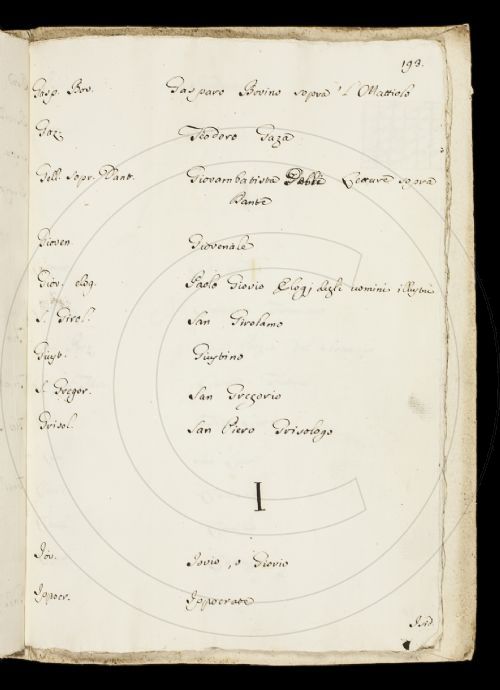 193.
Gasp. Bov. Gasparo Bovino sopra l'Mattiolo
Gaz. Teodoro Gaza
Gell. sopr. Dant. Giovambatista Gelli Letture sopra
Dante
Gioven. Giovenale
Giov. elog. Paolo Giovio Elogj degli uomini illustri
S. Girol. San Girolamo
Giust. Giustino
S. Gregor. San Gregorio
Grisol. San Piero Grisologo
I
Iov. Iovio, o Giovio
Ippocr. Ippocrate